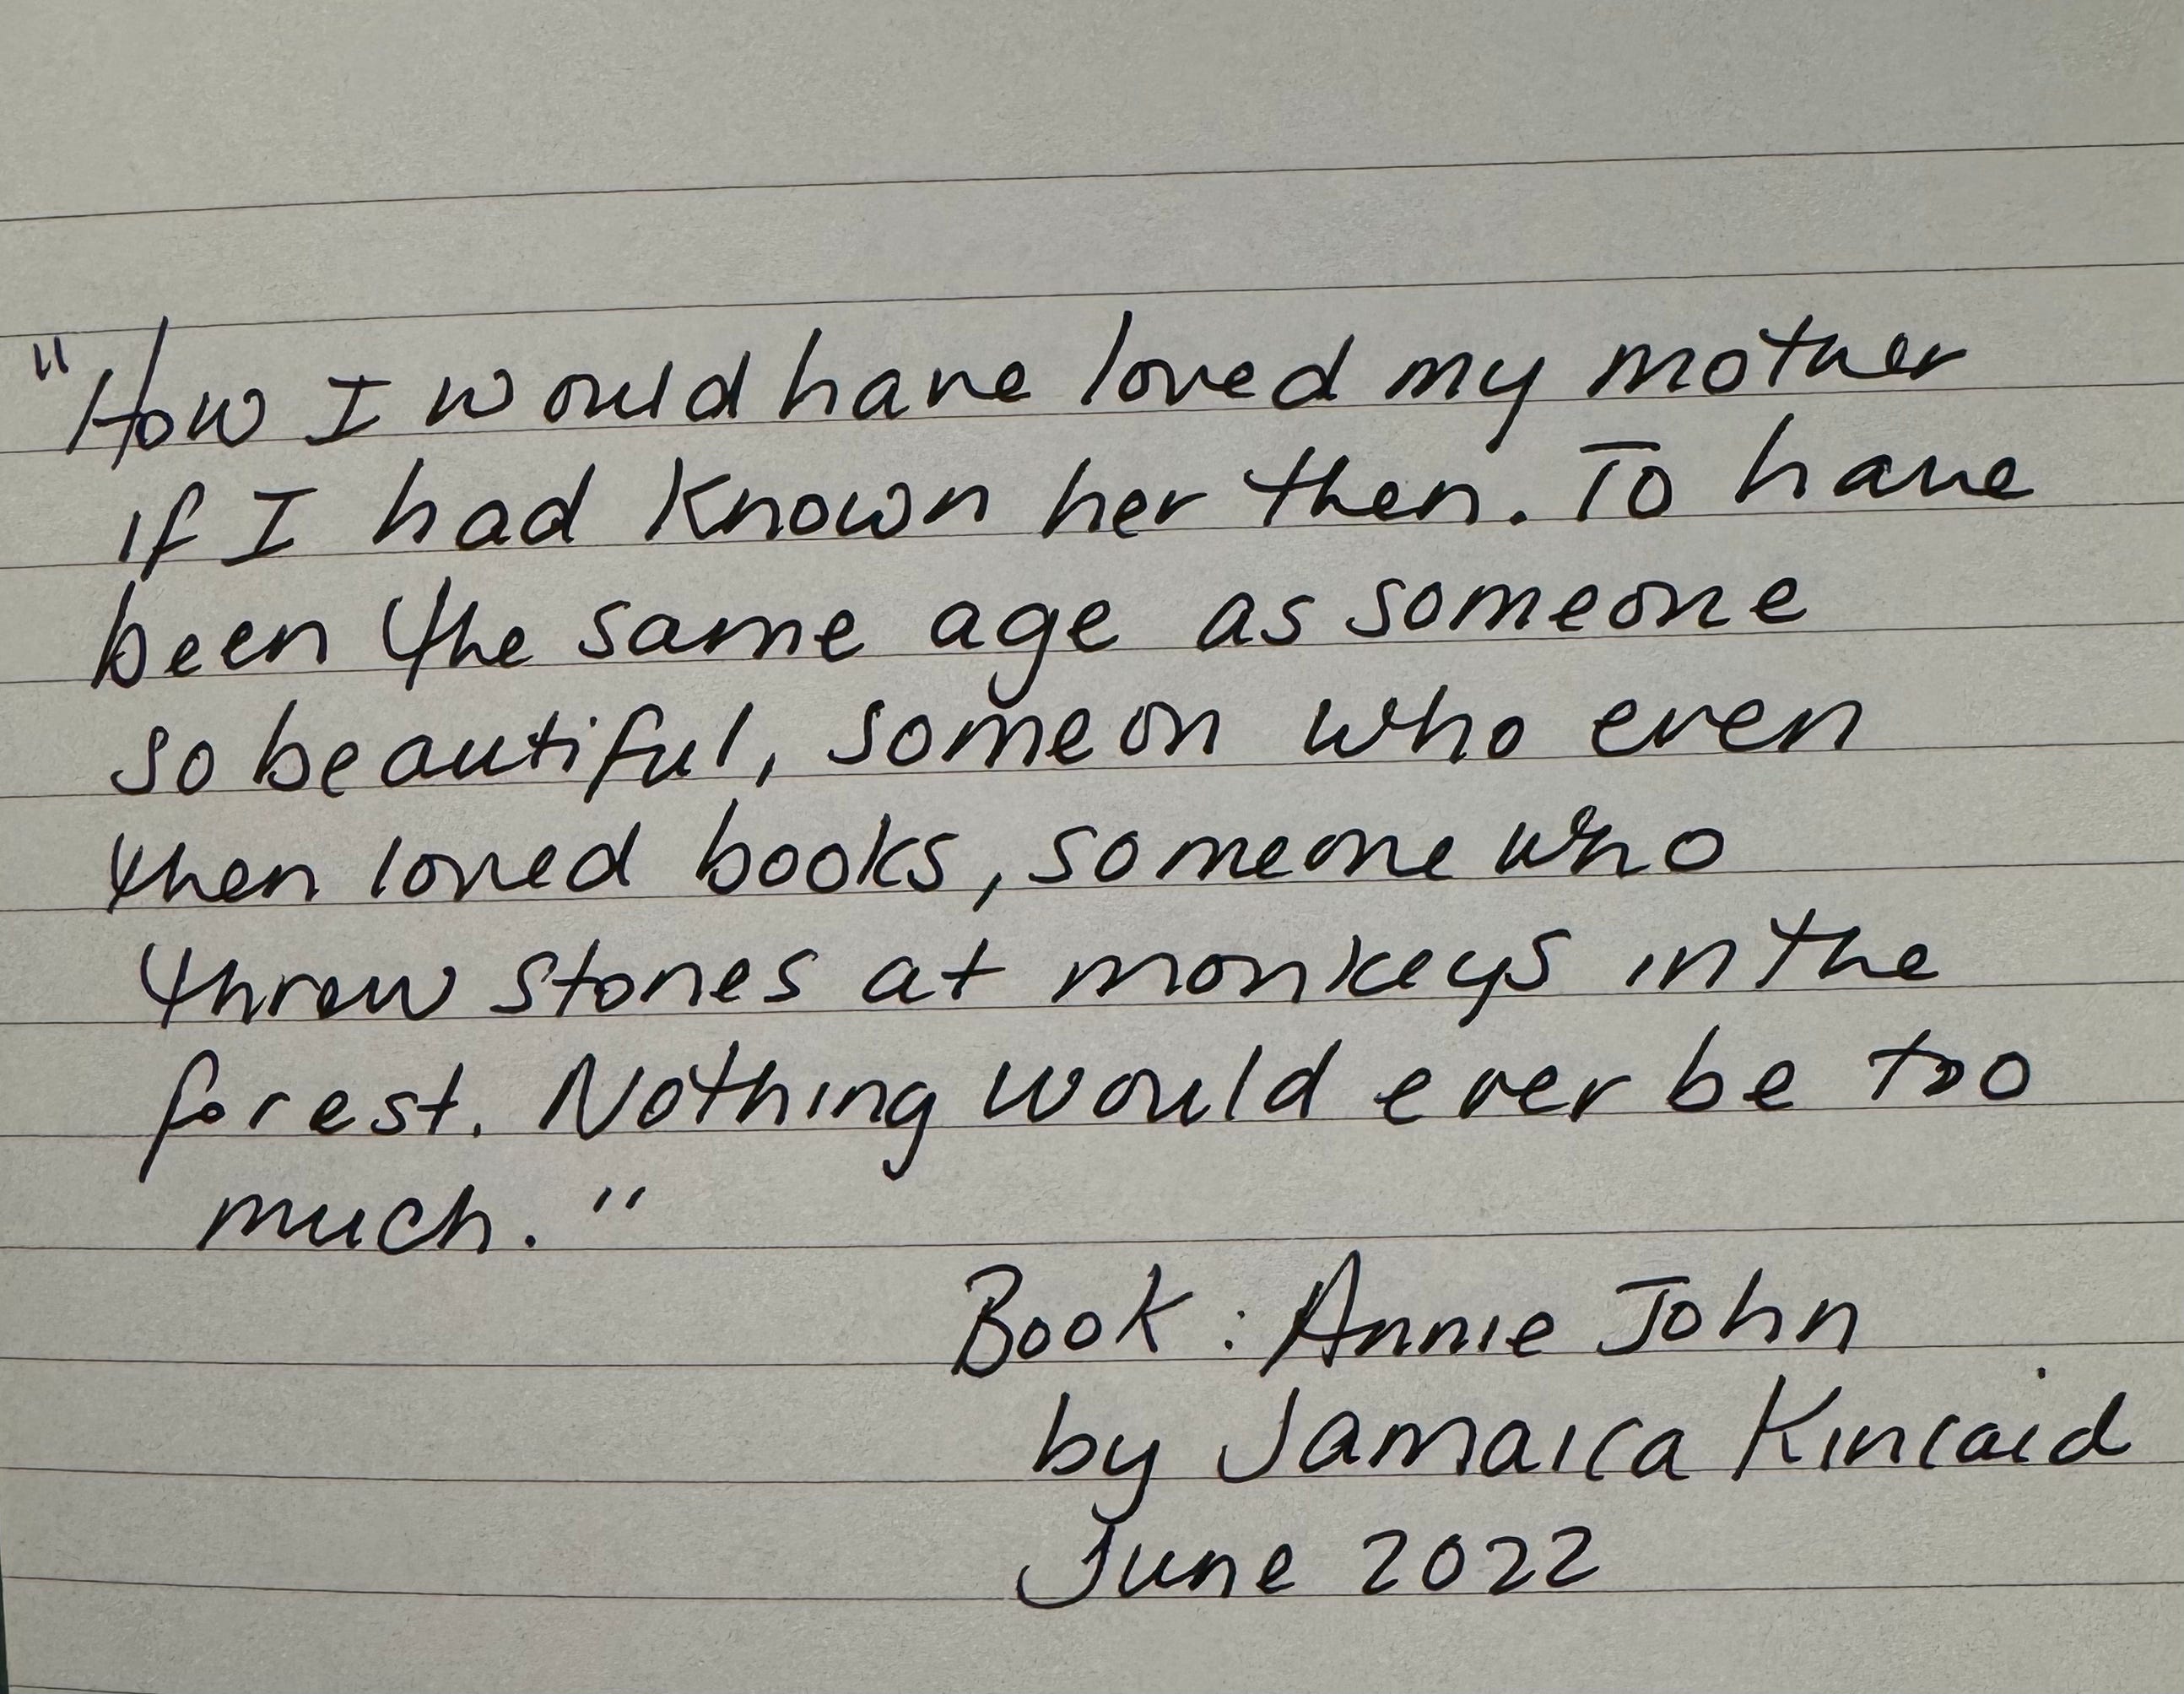 "How I would have loved my mother
if I had known her then. To have
been the same age as someone
so beautiful, someon who even
then loved books, someone who
threw stones at monkeys in the
forest. Nothing would ever be too
much."
Book: Annie John
by Jamaica Kincaid
June 2022